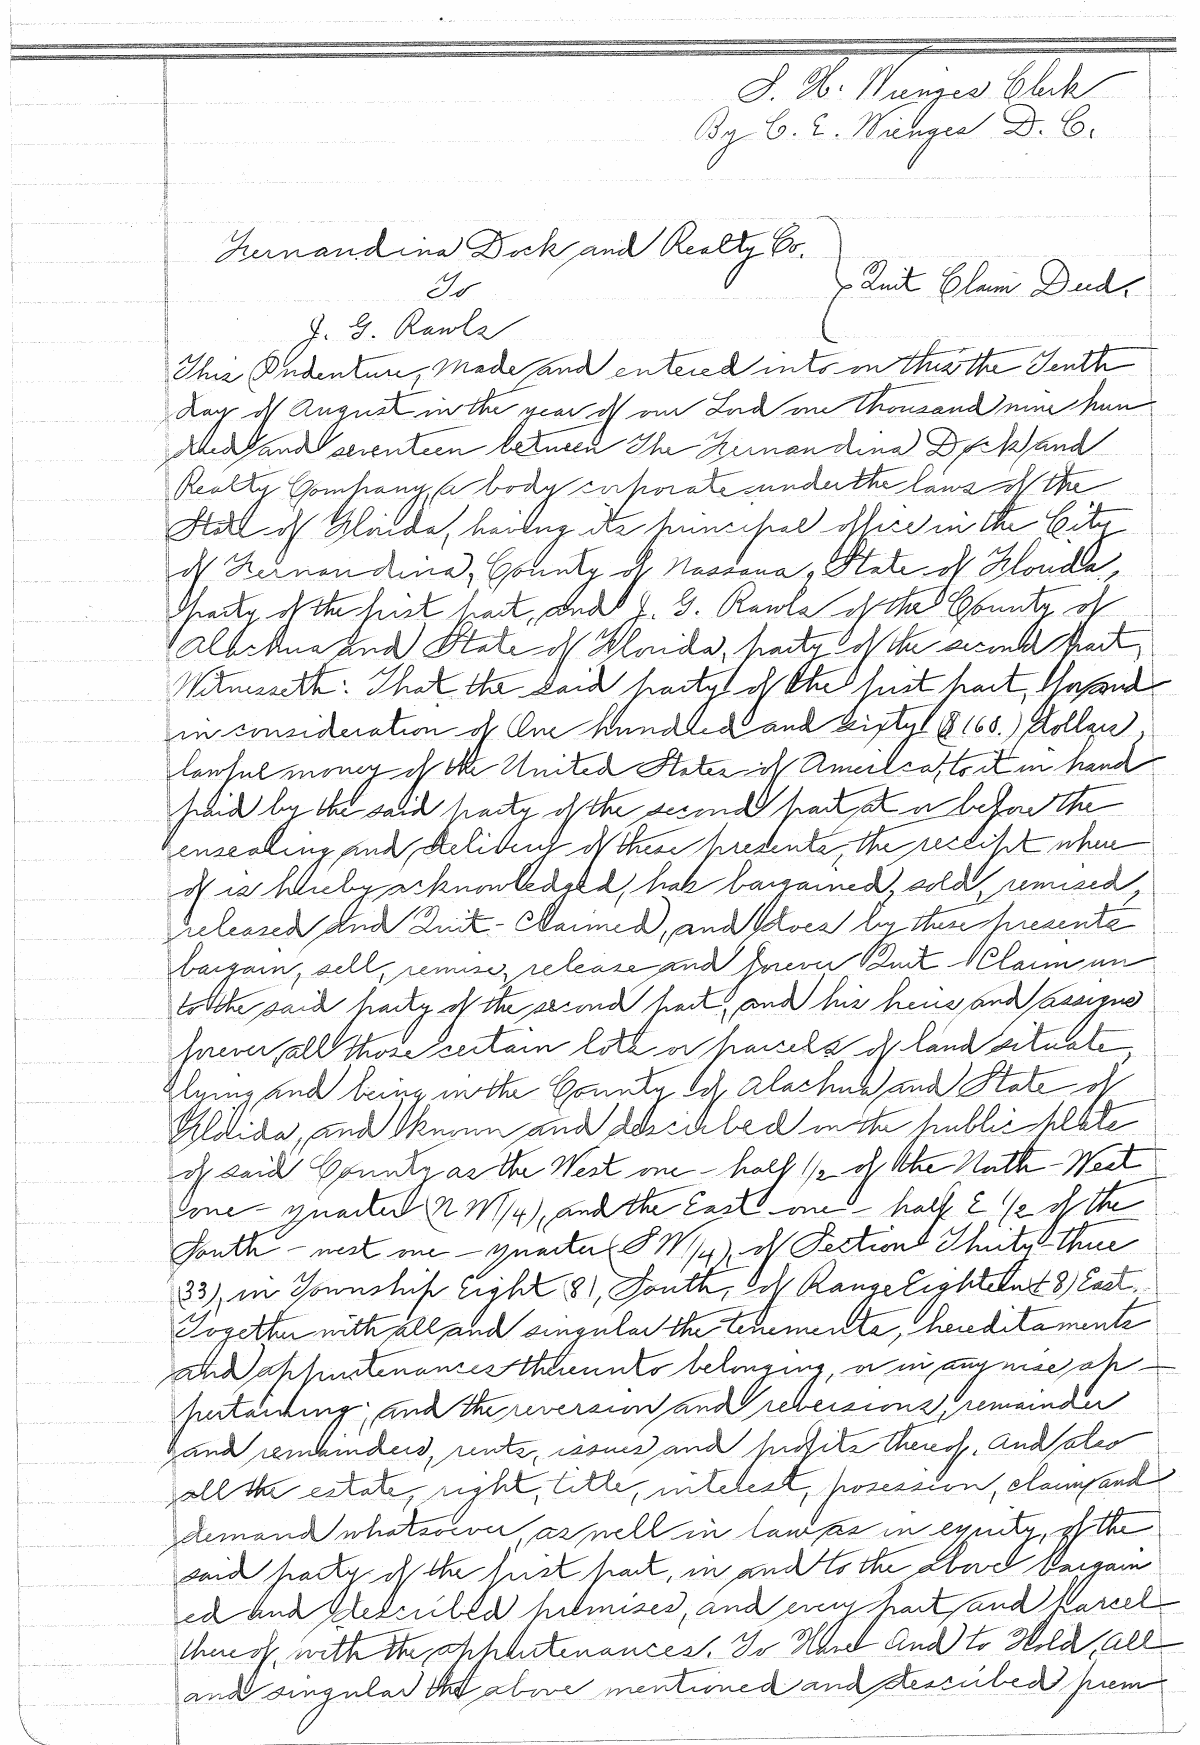 S. H. Wienges Clerk
By C. E. Wienges D. C.
Fernandina Dock and Realty Co.
To
Quit Claim Deed.
J. G. Rawls
This Indenture, Made and entered into on this the Tenth
day of August in the year of our Lord one thousand nine hun
dred and seventeen between The Fernandina Dock and
Realty Company, a body corporate under the laws of the
State of Florida, having its principal office in the City
of Fernandina, County of Nassaua, State of Florida,
party of the first part, and J. G. Rawls of the County of
Alachua and State of Florida, party of the second part,
Witnesseth: That the said party of the first part, for and
in consideration of One hundred and sixty ($160.) Dollars,
lawful money of the United States of America, to it in hand
paid by the said party of the second part, at or before the
ensealing and delivery of these presents, the receipt where
of is hereby acknowledged, has bargained, sold, remised,
released and Quit-Claimed, and does by these presents
bargain, sell, remise, release and forever Quit Claim un
to the said party of the second part, and his heirs and assigns
forever, all those certain lots or parcels of land situate,
lying and being in the County of Alachua and State of
Florida, and known and described on the public plats
of said County as the West one-half 1/2 of the North-West
one-quarter (N W 1/4), and the East one-half E 1/2 of the
South-west one-quarter (S W 1/4), of Section Thirty-three
(33), in Township Eight (8), South, of Range Eighteen (18) East.
Together with all and singular the tenements, hereditaments
and appurtenances thereunto belonging, or in any wise ap-
pertaining; and the reversion and reversions, remainder
and remainders, rents, issues and profits thereof. And also
all the estate, right, title, interest, posession, claim and
demand whatsoever, as well in law as in equity, of the
said party of the first part, in and to the above bargain
ed and described premises, and every part and parcel
thereof, with the appurtenances. To Have And to Hold, all
and singular the above mentioned and described prem